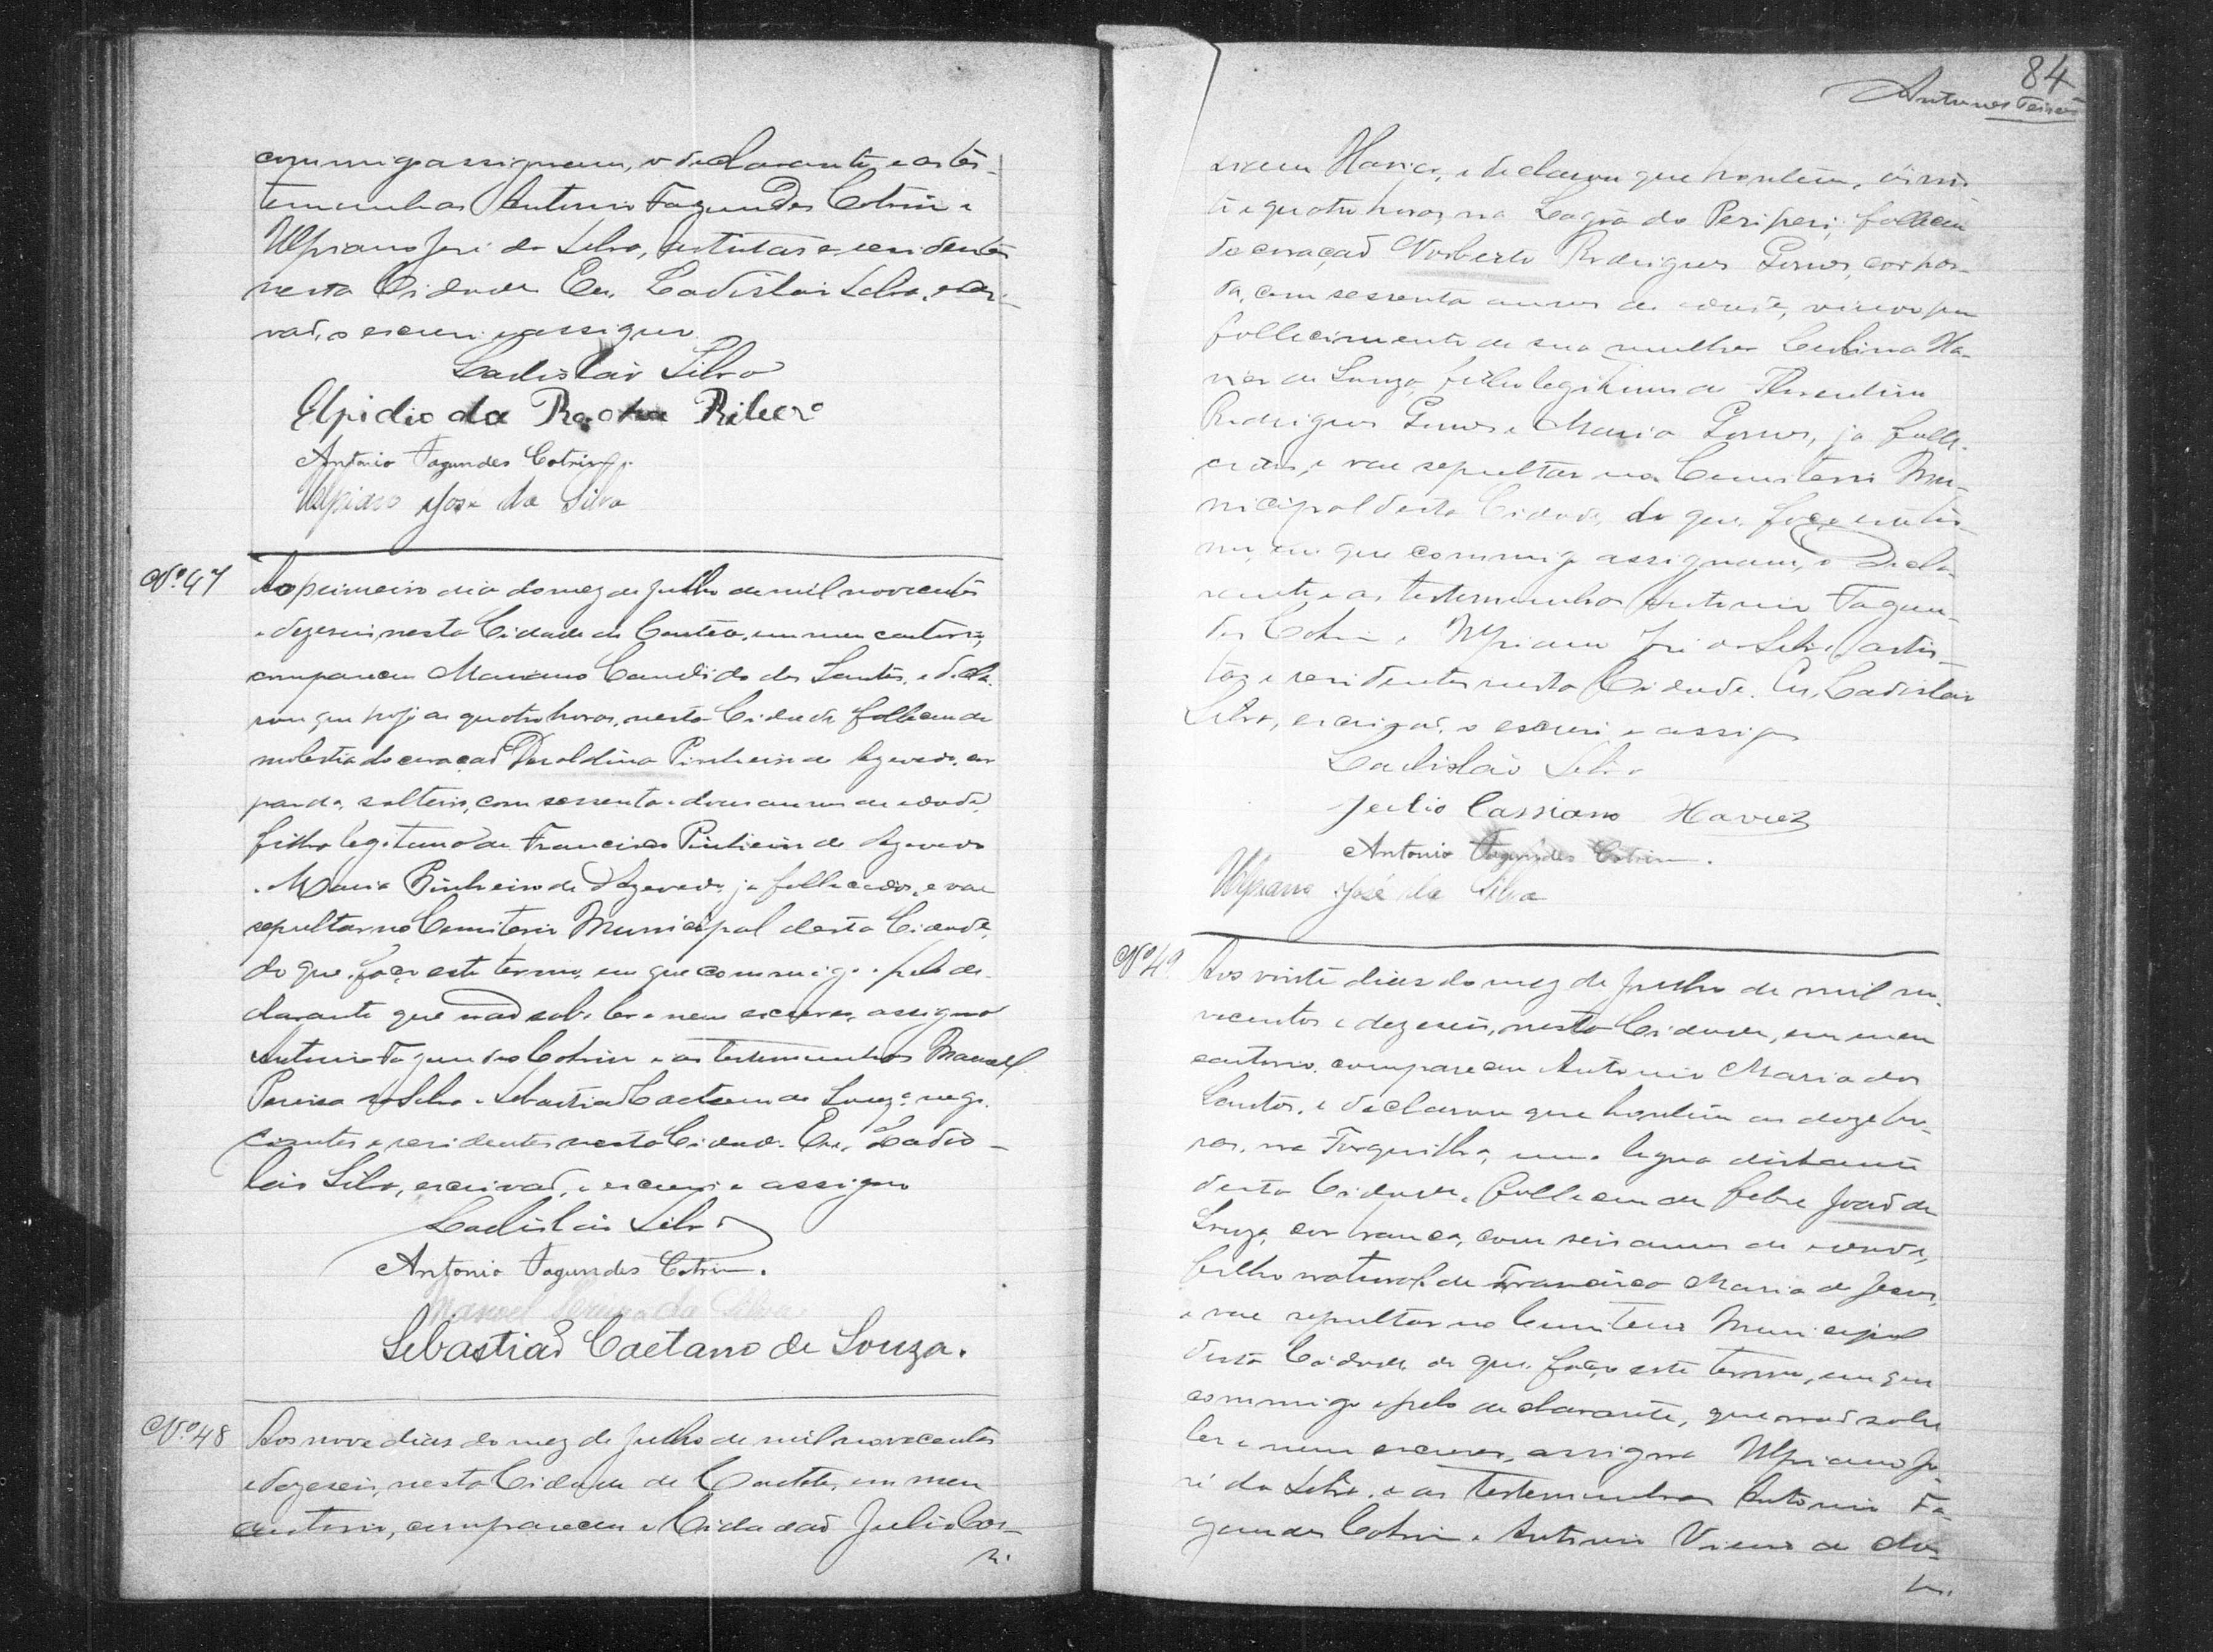 commigo assignam, o declarante e as tes-
temunhas Antonio Fagundes Cotrim e
Ulpiano José da Silva, artistas e residentes
nesta Cidade. Eu, Ladislau Silva, escri-
vaõ, o escrevi e assigno
Ladisláo Silva
Elpidio da Rocha Ribeiro
Antonio Fagundes Cotrim
Ulpiano José da Silva
Nº 47
Ao primeiro dia do mez de Julho de mil novecentos
e dezeseis, nesta Cidade de Caeteté, em meu cartorio,
compareceu Mariano Candido dos Santos, e decla-
rou que hoje as quatro horas, nesta Cidade falleceu de
molestia do coraçaõ Deroldina Pinheiro de Azevedo, cor
parda, solteira, com sessenta e dous annos de edade,
filha legitima de Francisco Pinheiro de Azevedo
e Maria Pinheiro de Azevedo, ja fallecidos, e vae
sepultar no Cemiterio Municipal desta Cidade,
do que faço este termo, em que commigo e pelo de-
clarante que naõ sabe ler e nem escrever, assigna
Antonio Fagundes Cotrim e as testemunhas Manoel
Pereira da Silva e Sebastiaõ Caetano de Souza, nego-
ciantes e residentes nesta Cidade. Eu, Ladis-
láo Silva, escrivaõ, o escrevi e assigno
Ladisláo Silva
Antonio Fagundes Cotrim.
Manoel Pereira da Silva
Sebastiaõ Caetano de Souza.
Nº 48
Aos nove dias do mez de Julho de mil novecentos
e dezeseis, nesta Cidade de Caeteté, em meu
cartorio, compareceu o Cidadaõ Julio Cas-
84
Antunes Teixeira
siano Havier, e declarou que hontem, ás vin-
te e quatro horas, na Lagôa do Periperi, falleceu
do coraçaõ Norberto Rodrigues Gomes, cor par-
da, com sessenta annos de edade, viuvo por
fallecimento de sua mulher Ha-
vier de Souza, filho legitimo de
Rodrigues Gomes e Maria Gomes, ja falle-
cidos, e vae sepultar no Cemiterio Mu-
nicipal desta Cidade, do que faço este ter-
mo, em que commigo assignam, o Decla-
rante e as testemunhas Antonio Fagun-
des Cotrim e Ulpiano José da Silva, artis-
tas e residentes nesta Cidade. Eu, Ladisláo
Silva, escrivaõ, o escrevi e assigno
Ladisláo Silva
Julio Cassiano Havier
Antonio Fagundes Cotrim.
Ulpiano José da Silva
Nº 49
Aos vinte dias do mez de Julho de mil no-
vecentos e dezeseis, nesta Cidade, em meu
cartorio, compareceu Antonio Maria dos
Santos, e declarou que hontem as doze ho-
ras, na Forquilha, uma legua distante
desta Cidade, falleceu de febre Joaõ de
Souza, cor branca, com seis annos de edade,
filho natural de Francisca Maria de Jesus,
e vae sepultar no Cemiterio Municipal
desta Cidade, do que faço este termo, em que
commigo e pelo declarante, que naõ sabe
ler e nem escrever, assigna Ulpiano Jo-
sé da Silva, e as testemunhas Antonio Fa-
gundes Cotrim e Antonio Vieira de